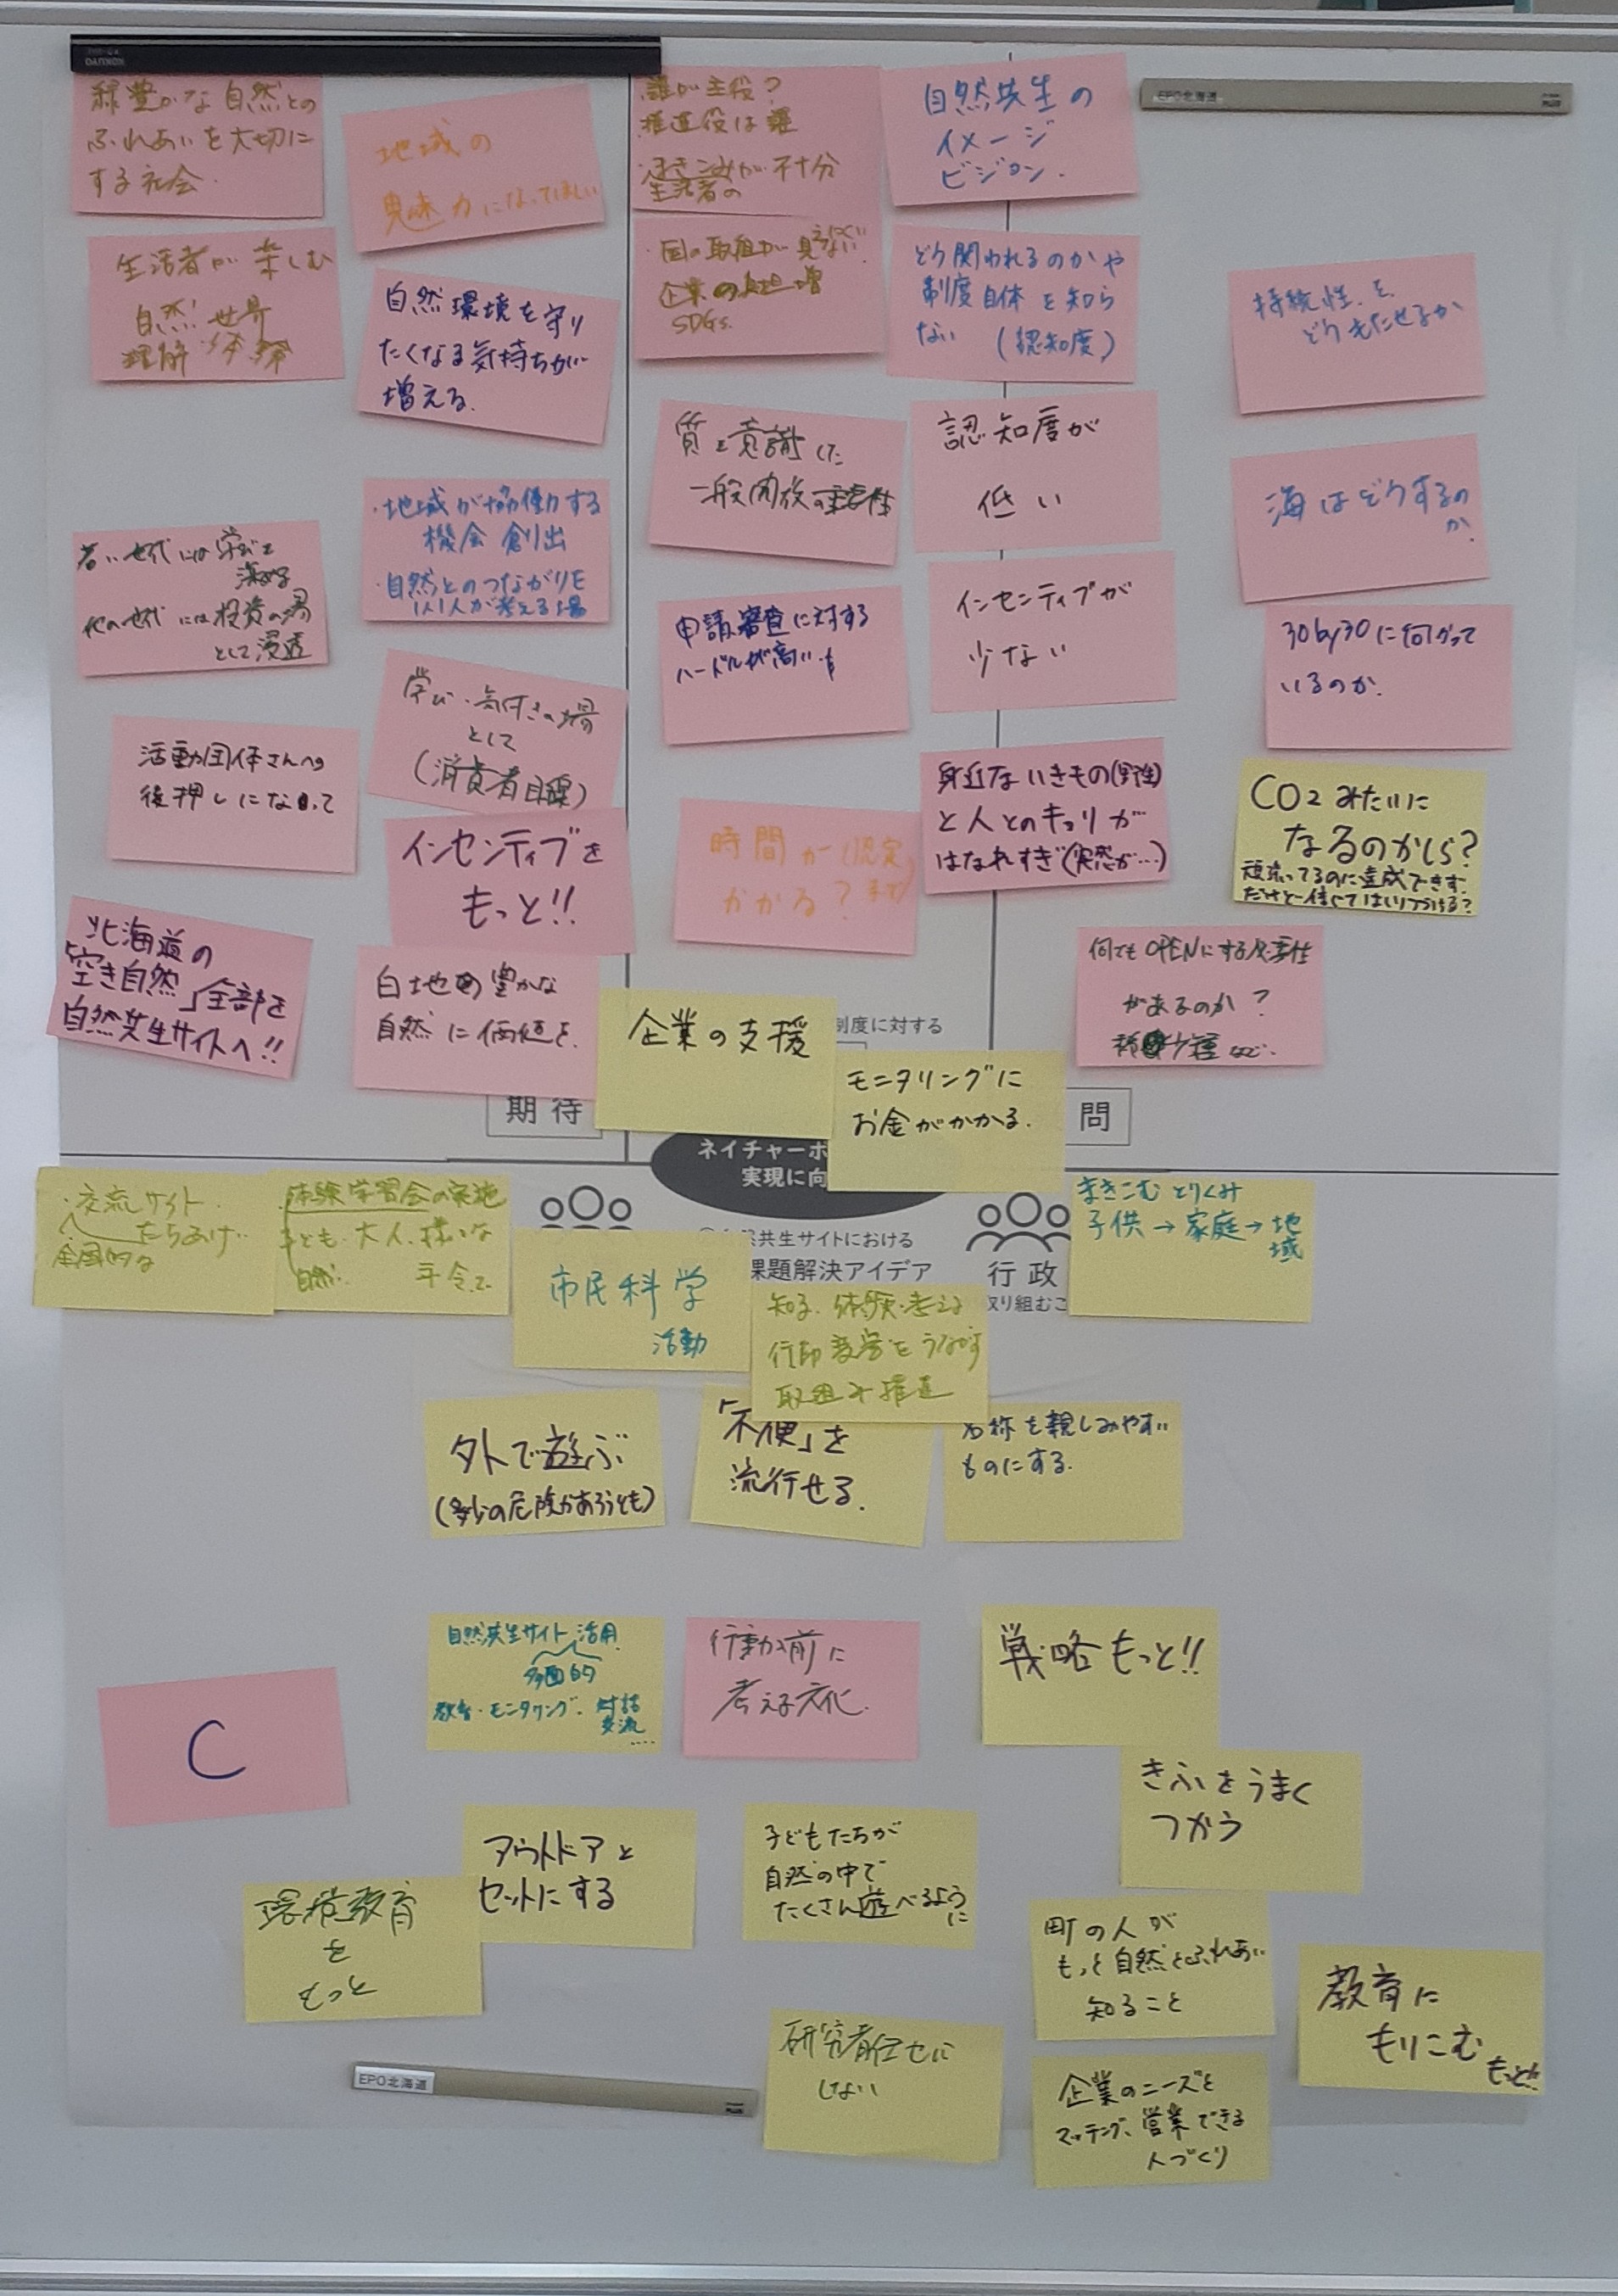 緑豊かな自然との
ふれあいを大切に
する社会.
地域の
魅力になってほしい
生活者が楽しむ
自然 世界
理解 体験
自然環境を守り
たくなる気持ちが
増える.
・地域が協働する
機会創出
・自然とのつながりを
1人1人が考える場
若い世代には学びを
他の世代には投資の場
として浸透
学び・気付きの場
として
(消費者目線)
活動団体さんへの
後押しになって
インセンティブを
もっと!!
北海道の
「空き自然」全部を
自然共生サイトへ!!
白地の豊かな
自然に価値を.
誰が主役?
推進役は誰
・まきこみが不十分
生活者の
・国の取組が見えにくい
企業の負担増
SDGs.
自然共生の
イメージ
ビジョン.
どう関われるのかや
制度自体を知ら
ない (認知度)
質を意識した
一般開放の重要性
認知度が
低い
申請審査に対する
ハードルが高い
インセンティブが
少ない
時間が(認定まで)
かかる?
身近ないきもの(野性)
と人とのキョリが
はなれすぎ(突然が…)
持続性を
どうもたせるか
海はどうするの
か?
30by30に向かって
いるのか.
CO2みたいに
なるのかしら?
頑張ってるのに達成できず.
何でもOPENにする必要性
があるのか?
希少種など.
企業の支援
制度に対する
モニタリングに
お金がかかる.
期待
問
ネイチャーポ
実現に向
・交流サイト
たちあげ..
全国的な
体験学習会の実施
子ども・大人、様々な
自然. 年令で
市民科学
活動
共生サイトにおける
課題解決アイデア
行政
取り組むこ
知る、体験・考える
行動変容をうながす
取組み推進
まきこむとりくみ
子供→家庭→地域
外で遊ぶ
(多少の危険があろうとも)
「不便」を
流行せる.
名称を親しみやすい
ものにする.
自然共生サイト活用
多面的
教育・モニタリング・対話
交流
....
行動の前に
考える文化.
戦略もっと!!
C
きふをうまく
つかう
アウトドアと
セットにする
子どもたちが
自然の中で
たくさん遊べるように
環境教育
を
もっと
町の人が
もっと自然とふれあい
知ること
教育に
もりこむ
もっと!!
研究者任せに
しない
企業のニーズと
マッチング、営業できる
人づくり
EPO北海道
EPO北海道